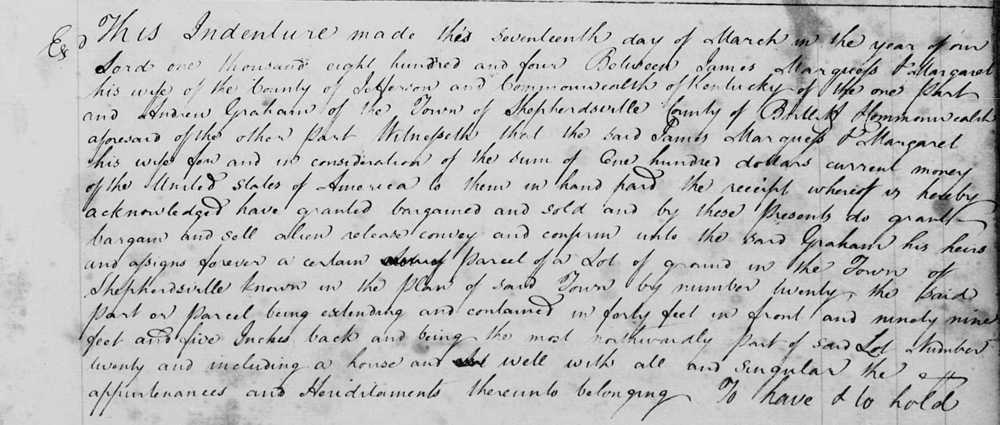 Exd This Indenture made this seventeenth day of March in the year of our
Lord one thousand eight hundred and four Between James Marquess & Margaret
his wife of the County of Jefferson and Commonwealth of Kentucky of the one part
and Andrew Graham of the Town of Shepherdsville County of Bullitt & Commonwealth
aforesaid of the other part Witnesseth that the said James Marquess & Margaret
his wife for and in consideration of the sum of One hundred dollars current money
of the United States of America to them in hand paid the receipt whereof is hereby
acknowledged have granted bargained and sold and by these Presents do grant
bargain and sell alien release convey and confirm unto the said Graham his heirs
and assigns forever a certain parcel of a Lot of ground in the Town of
Shepherdsville known in the plan of said Town by number twenty, the said
part or Parcel being extending and contained in forty feet in front and ninety nine
feet and five Inches back and being the most northwardly part of said Lot Number
twenty and including a house and well with all and singular the
appurtenances and Heriditaments thereunto belonging To have & to hold